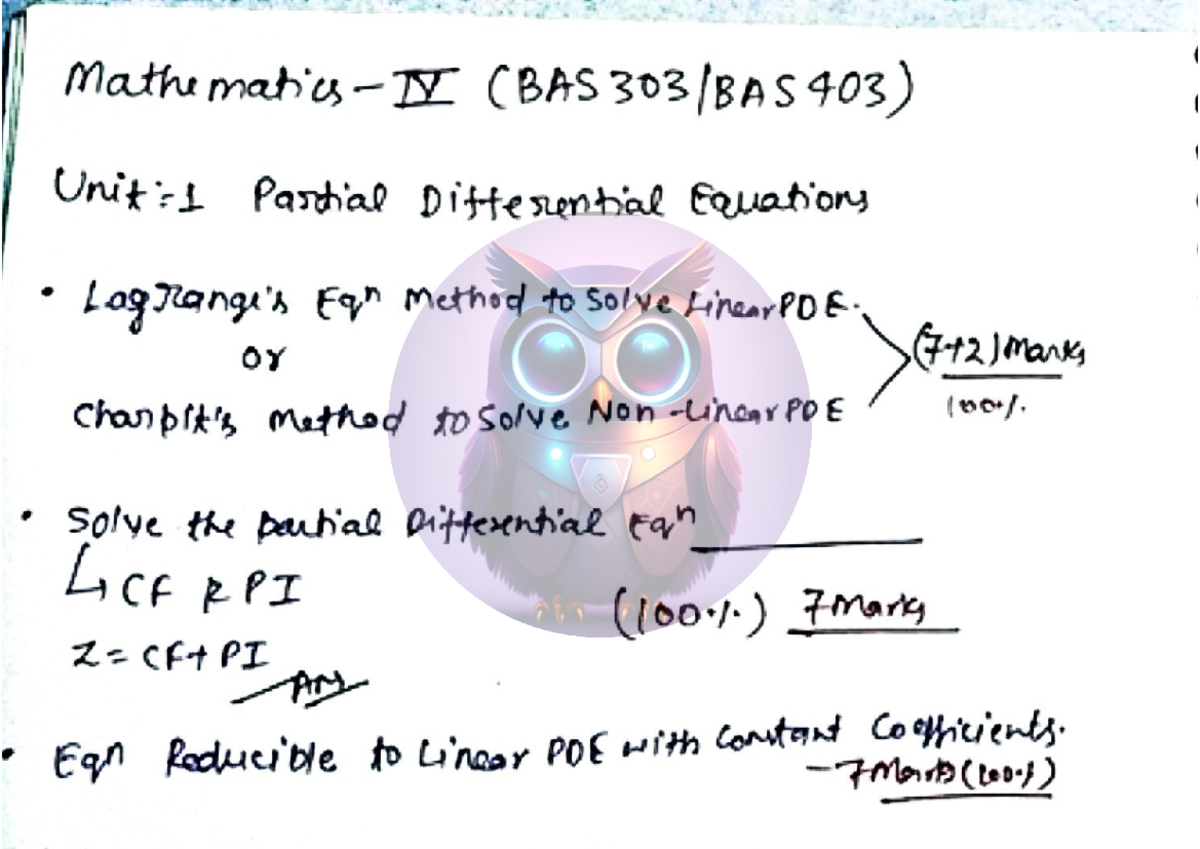 Mathematics - IV (BAS 303/BAS 403)
Unit:-1 Partial Differential Equations
• Lagrange's Eqn Method to Solve Linear PDE.
or
Charpit's Method to Solve Non-Linear PDE
(7+2) Marks
100%
• Solve the partial Differential Eqn ______
↳ CF & PI
(100%) 7 Marks
Z = CF + PI
Ans
• Eqn Reducible to Linear PDE with Constant Coefficients.
- 7 Marks (100%)